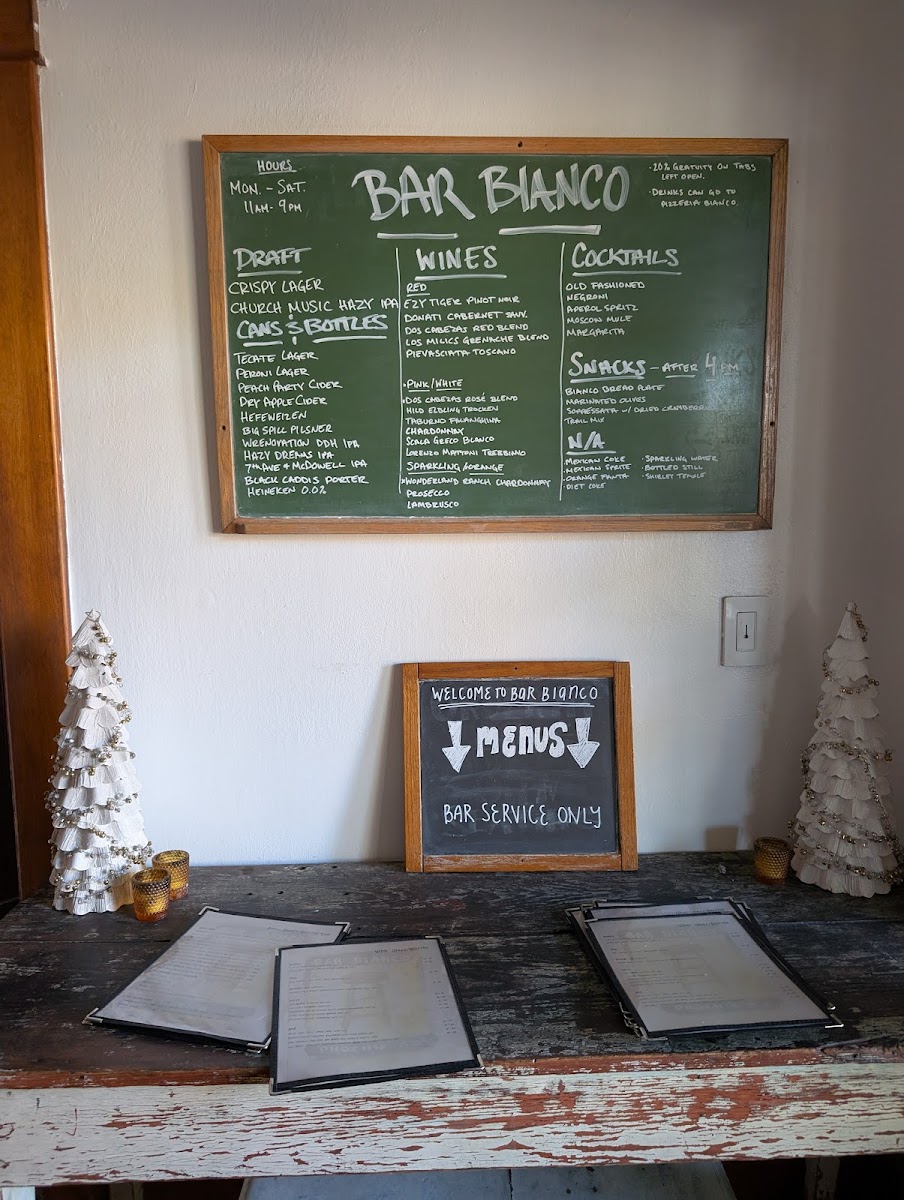 HOURS
MON. - SAT.
11AM - 9PM
BAR BIANCO
· 20% GRATUITY ON TABS
LEFT OPEN.
· DRINKS CAN GO TO
PIZZERIA BIANCO.
DRAFT
CRISPY LAGER
CHURCH MUSIC HAZY IPA
CANS & BOTTLES
TECATE LAGER
PERONI LAGER
PEACH PARTY CIDER
DRY APPLE CIDER
HEFEWEIZEN
BIG SPILL PILSNER
WRENOVATION DDH IPA
HAZY DREAMS IPA
7TH AVE & MCDOWELL IPA
BLACK CADDIS PORTER
HEINEKEN 0.0%
WINES
RED
EZY TIGER PINOT NOIR
DONATI CABERNET SAUV.
DOS CABEZAS RED BLEND
LOS MILICS GRENACHE BLEND
PIEVASCIATA TOSCANO
· PINK/WHITE
· DOS CABEZAS ROSÉ BLEND
HILD ELBLING TROCKEN
TABURNO FALANGHINA
CHARDONNAY
SCALA GRECO BIANCO
LORENZO MATTONI TREBBINO
SPARKLING/ORANGE
· WONDERLAND RANCH CHARDONNAY
PROSECCO
LAMBRUSCO
COCKTAILS
OLD FASHIONED
NEGRONI
APEROL SPRITZ
MOSCOW MULE
MARGARITA
SNACKS - AFTER 4PM
BIANCO BREAD PLATE
MARINATED OLIVES
SOPRESSATA W/ DRIED CRANBERRIES
TRAIL MIX
N/A
MEXICAN COKE
· MEXICAN SPRITE
· ORANGE FANTA
· DIET COKE
· SPARKLING WATER
· BOTTLED STILL
· SHIRLEY TEMPLE
WELCOME TO BAR BIANCO
MENUS
BAR SERVICE ONLY